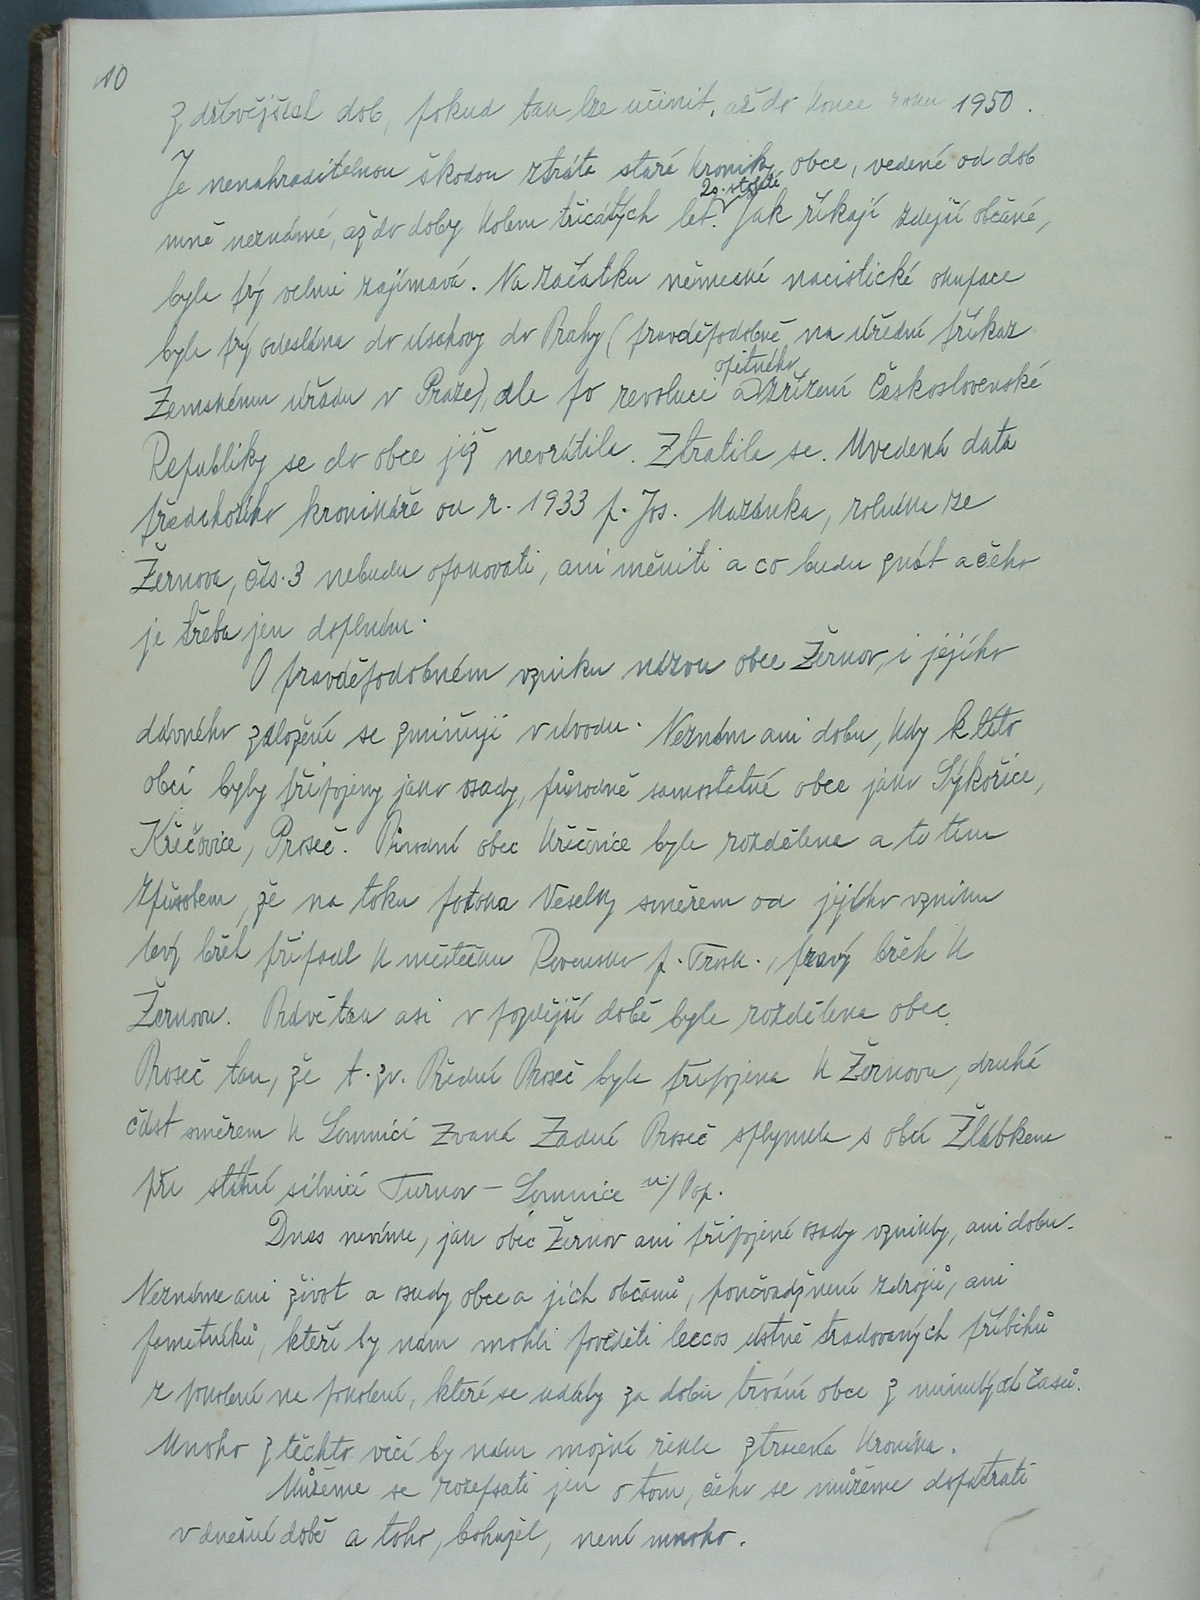 10
z dřívějších dob, pokud tak lze učinit, až do konce roku 1950.
Je nenahraditelnou škodou ztráta staré kroniky obce, vedené od dob
20. století
mně neznámé, až do doby kolem třicátých let. Jak říkají zdejší občané,
byla prý velmi zajímavá. Na začátku německé nacistické okupace
byla prý odeslána do úschovy do Prahy (pravděpodobně na úřední příkaz
opětného
Zemskému úřadu v Praze), ale po revoluci a zřízení Československé
Republiky se do obce již nevrátila. Ztratila se. Uvedená data
předchozího kronikáře od r. 1933 p. Jos. Mazánka, rolníka ze
Žernova, čís. 3 nebudu opakovati, ani měniti a co budu znát a čeho
je třeba jen doplním.
O pravděpodobném vzniku názvu obce Žernov, i jejího
dávného založení se zmiňuji v úvodu. Neznám ani dobu, kdy k této
obci byly připojeny jako osady, původně samostatné obce jako Sýkořice,
Křečovice, Proseč. Původní obec Křečovice byla rozdělena a to tím
způsobem, že na toku potoka Veselky směrem od jejího vzniku
levý břeh připadl k městečku Rovensko p. Trosk., pravý břeh k
Žernovu. Právě tak asi v pozdější době byla rozdělena obec
Proseč tak, že t. zv. Přední Proseč byla připojena k Žernovu, druhá
část směrem k Lomnici zvaná Zadní Proseč splynula s obcí Žlábkem
při státní silnici Turnov – Lomnice n/Pop.
Dnes nevíme, jak obec Žernov ani připojené osady vznikly, ani dobu.
Neznáme ani život a osudy obce a jich občanů, poněvadž není zdrojů, ani
pamětníků, kteří by nám mohli pověděti leccos ústně tradovaných příběhů
z pokolení na pokolení, které se udály za dobu trvání obce z minulých časů.
Mnoho z těchto věcí by nám možná řekla ztracená kronika.
Můžeme se rozepsati jen o tom, čeho se můžeme dopátrati
v dnešní době a toho, bohužel, není mnoho.